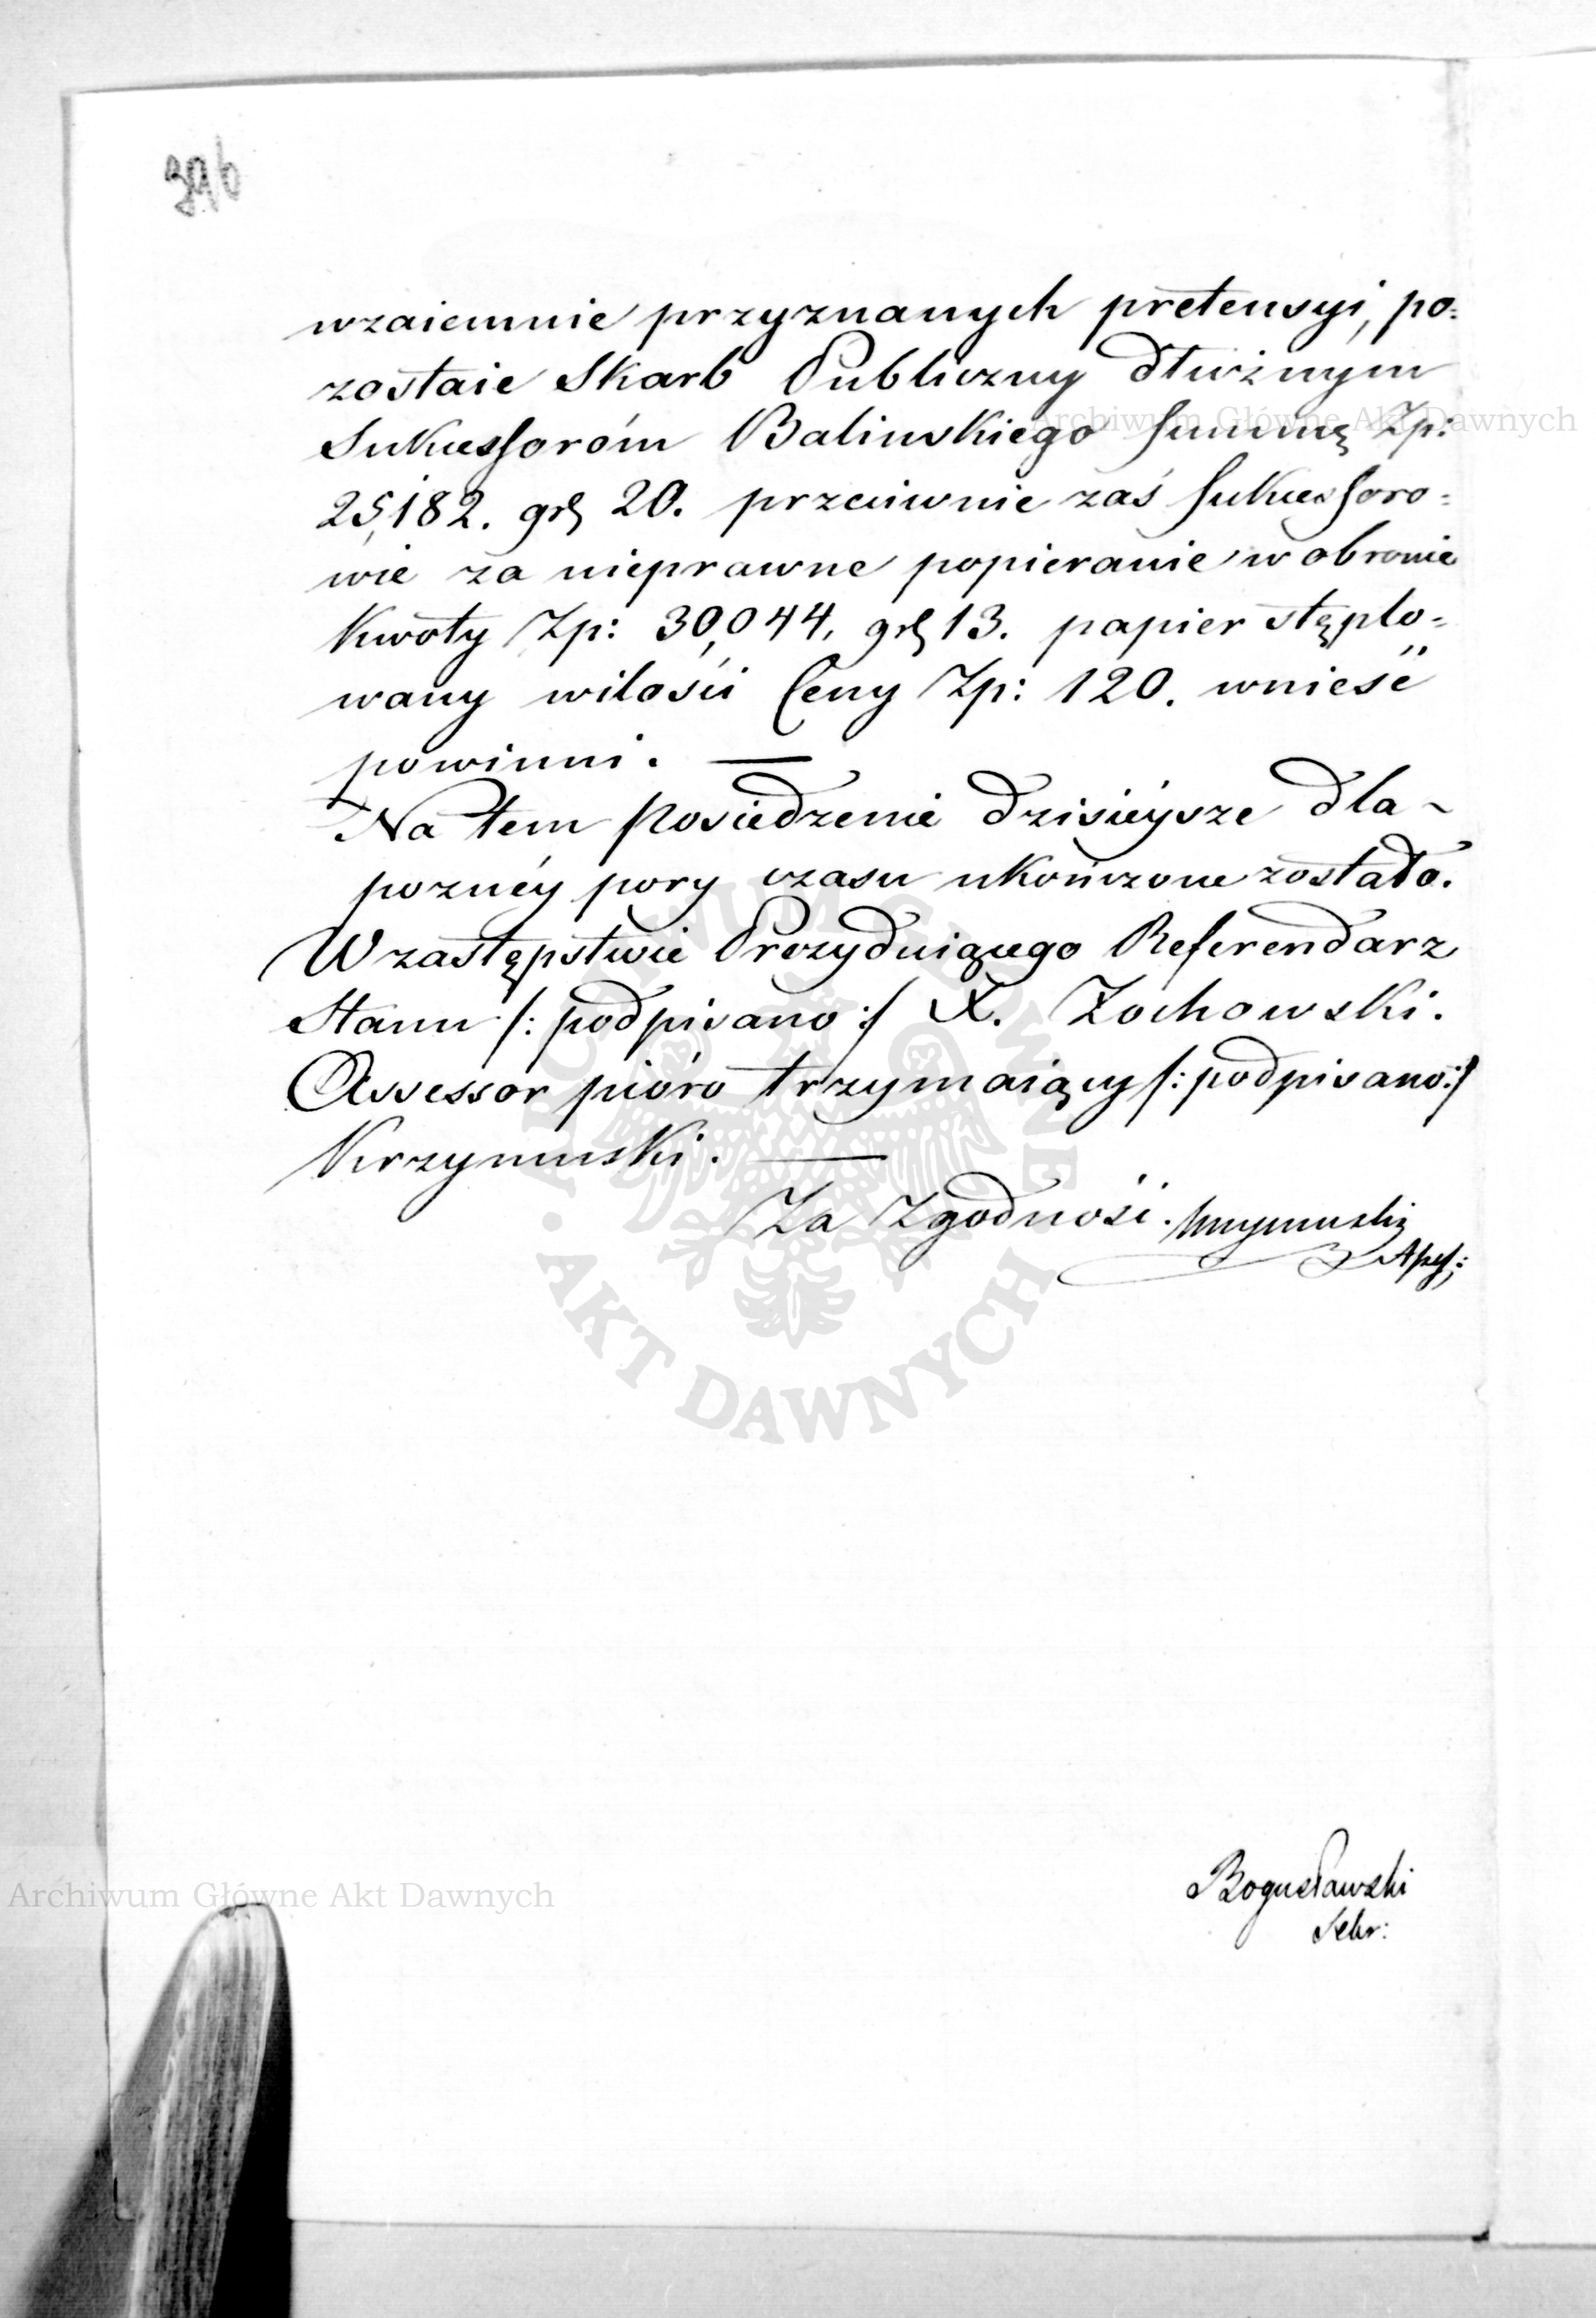 396
wzaiemnie przyznanych pretensyi, po=
zostaie Skarb Publiczny dłużnym
Sukcessorom Balinskiego Summę Zp:
25,182. gr. 20. przeciwnie zaś Sukcessoro=
wie za nieprawne popieranie w obronie
Kwoty Zp: 30,044. gr. 13. papier stęplo=
wany wilości Ceny Zp: 120. wnieść
powinni. —
Na tem Posiedzenie dzisieysze dla
pozney pory czasu ukończone zostało.
W zastępstwie Prezyduiącego Referendarz
Stanu /: podpisano :/ X. Zochowski.
Assessor pióro trzymaiący /: podpisano :/
Krzymuski. —
Za Zgodność. Krzymuski
Assess:
Bogusławski
Sekr:
Archiwum Główne Akt Dawnych
Archiwum Główne Akt Dawnych
ARCHIWUM GŁÓWNE · AKT DAWNYCH ·